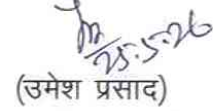 25.5.26
(उमेश प्रसाद)